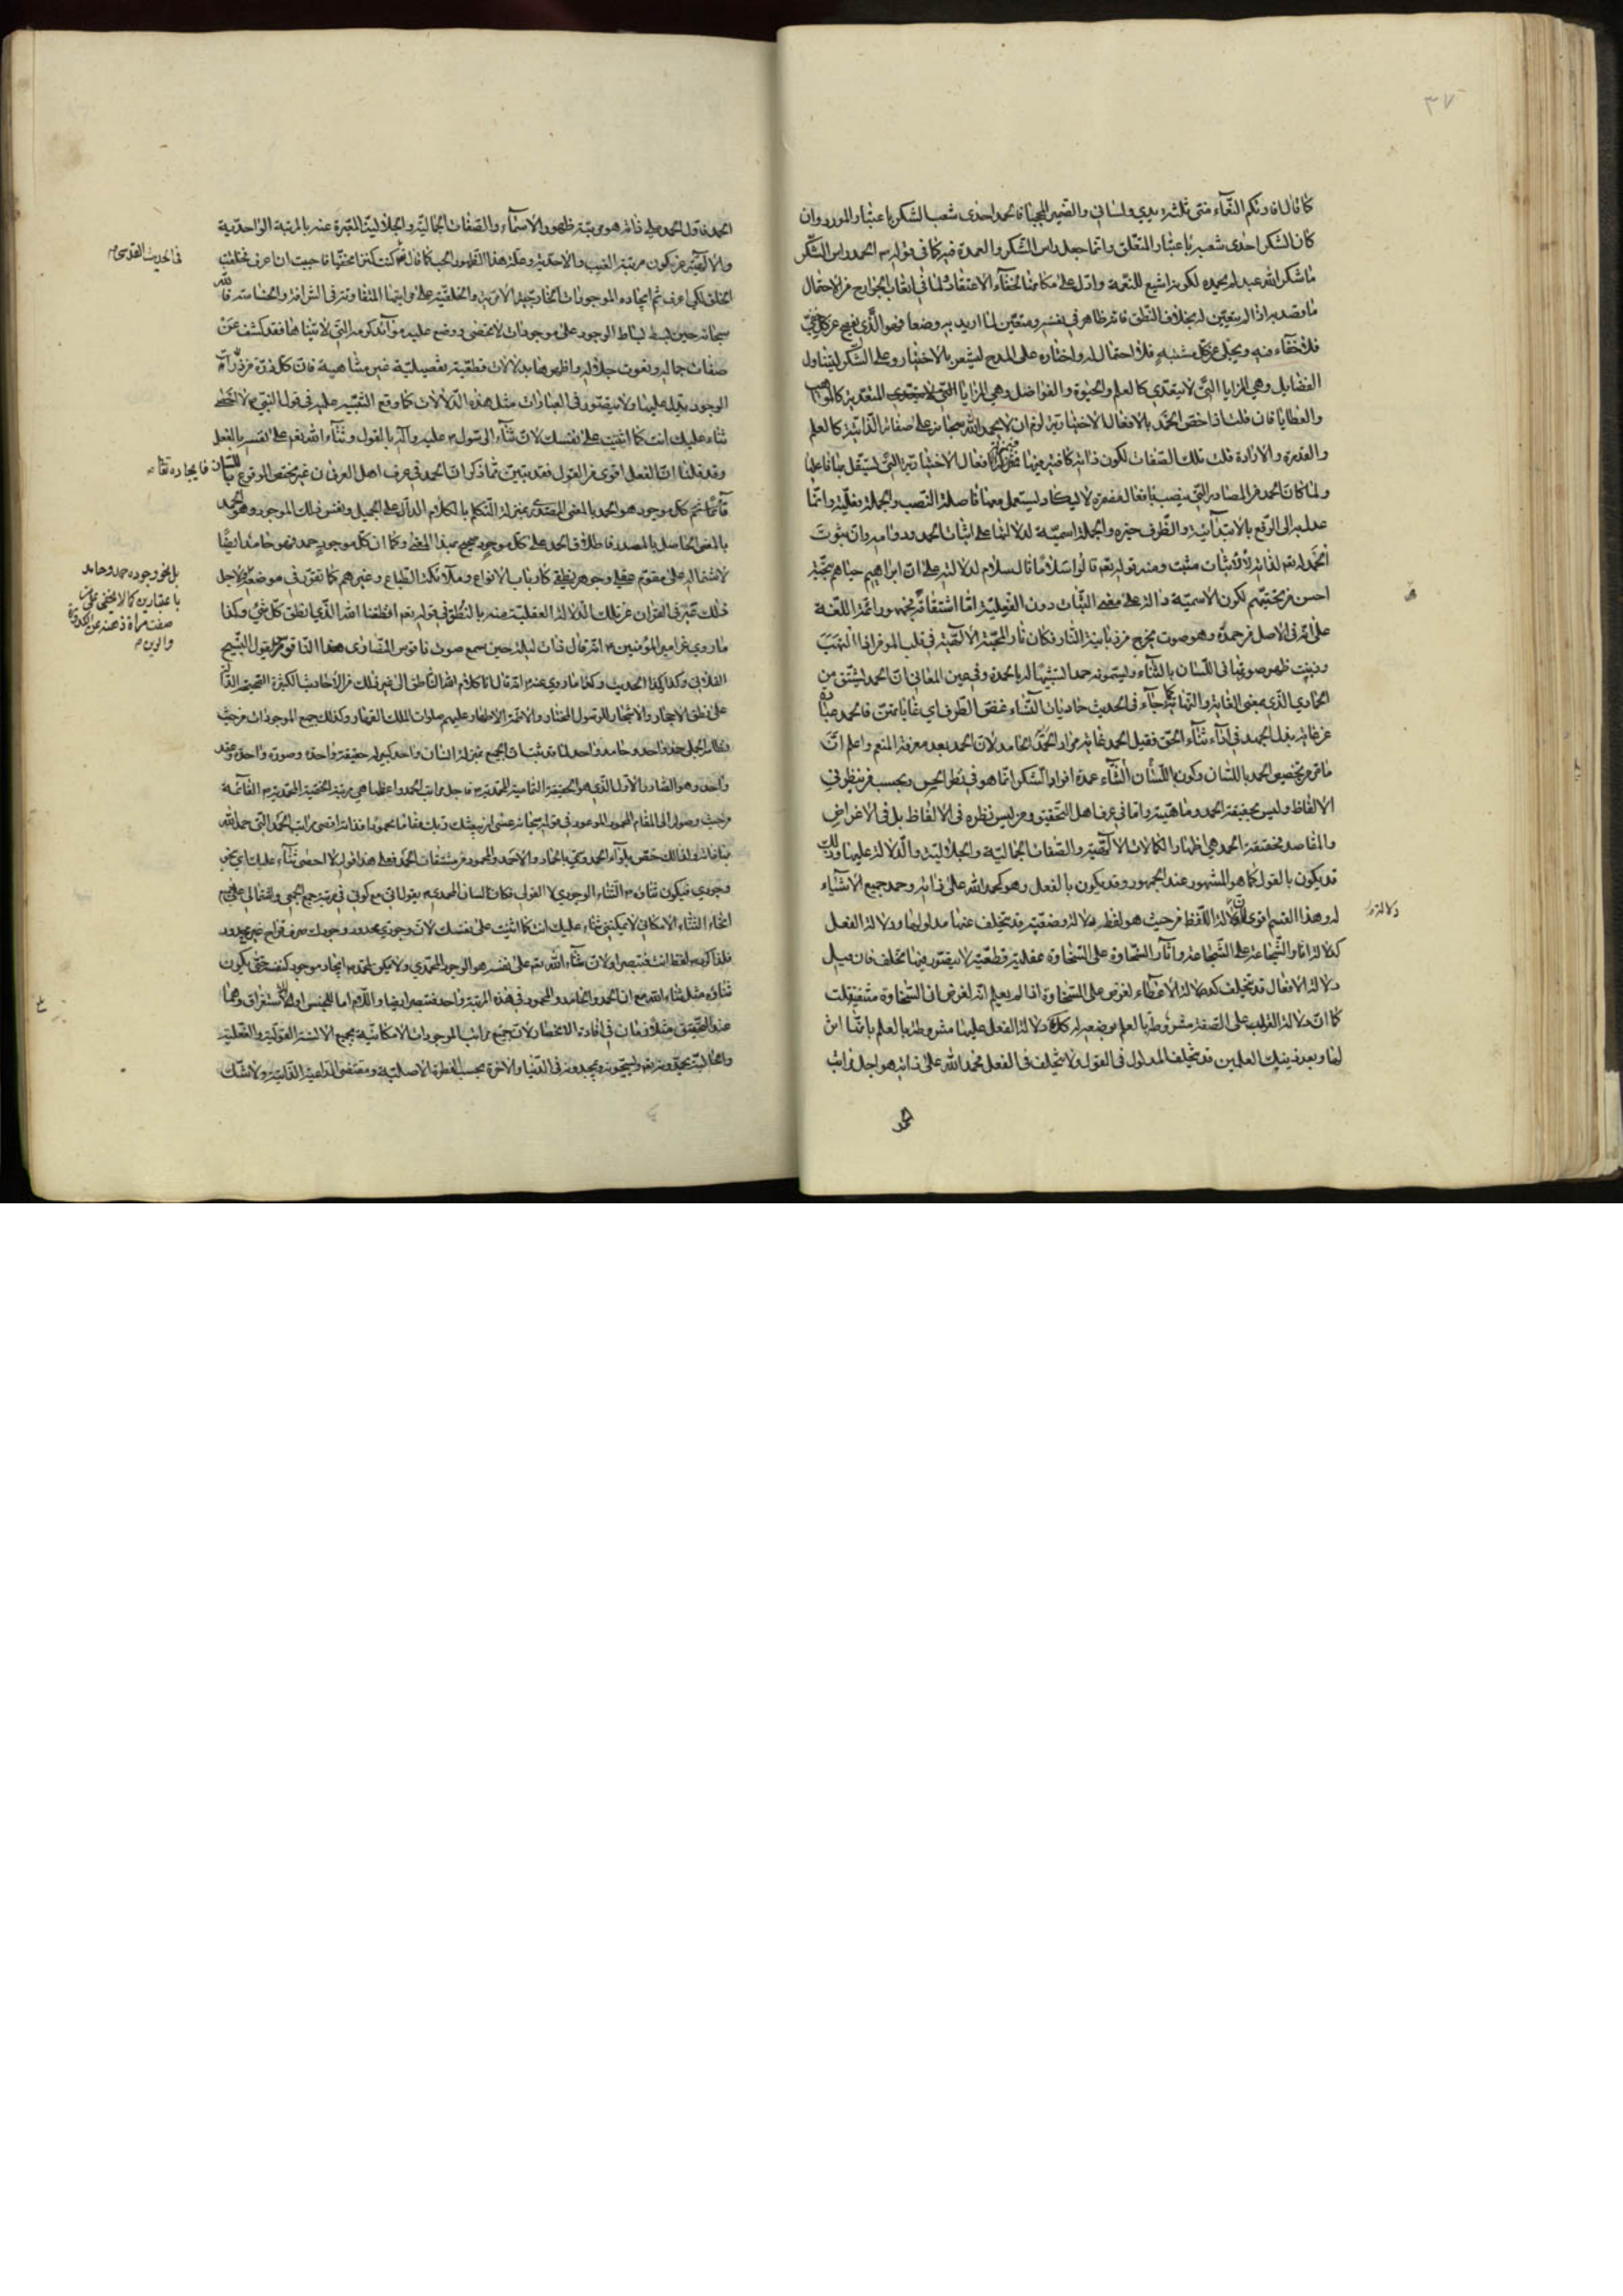 ٣٧
كما قال افادتكم النعماء منى ثلثة يدي ولساني والضمير المحجبا فالحمد احدى شعب الشكر باعتبار المورد وان
كان الشكر احدى شعبه باعتبار المتعلق وانما جعل راس الشكر والعمدة فيه كما في قوله ص الحمد راس الشكر
ما شكر الله عبد لم يحمده لكونه اشيع للنعمة وادل على مكانها لخفاء الاعتقاد ولما في اتعاب الجوارح من الاحتمال
ما وقصد به اذا لم يتعين له بخلاف النطق فانه ظاهر في نفسه ومتعين لما اريد به وضعا فهو الذي يفصح عن كل خفي
فلا خفاء فيه ويجلي عن كل مشتبه فلا احتمال له واختاره على المدح ليشعر بالاختيار وعلى الشكر ليتناول
الفضايل وهي المزايا التي لا يتعدى كالعلم والحيوة والفواضل وهي المزايا المتعدية كالمواهب
والعطايا فان قلت اذا خص الحمد بالافعال الاختيارية لزم ان لا يحمد الله سبحانه على صفاته الذاتية كالعلم
والقدرة والارادة قلت تلك الصفات لكون ذاته كافية فيها بمنزلة الافعال الاختيارية التي يستقل بها فاعلها
ولما كان الحمد من المصادر التي ينصب بافعال مضمرة لا يكاد يستعمل معها فاصله النصب والجملة فعلية وانما
عدل به الى الرفع بالابتدائية والظرف خبره والجملة اسمية لدلالتها على اثبات الحمد ودوامه وان ثبوت
الحمد له تعم لذاته لا لاثبات مثبت ومنه قوله تعم قالوا سلاما قال سلام لدلالته على ان ابراهيم حياهم بتحية
احسن من تحيتهم لكون الاسمية دالة على معنى الثبات دون الفعلية اما اشتقاقه فجمهور ائمة اللغة
على انه في الاصل من حمدة وهو صوت يخرج من ذبابة النار فكان نار المحبة الالهية في قلب المؤمن اذا التهبت
وذبت ظهر صوتها في اللسان بالثناء ويسمونه حمدا تشبيها له بالحمدة وفي عين المعاني ان الحمد يشتق من
الحمادي الذي بمعنى الغاية والنهاية كما جاء في الحديث حماديات النساء غض الطرف اي غاياتهن فالحمد عبارة
عن غاية بذل الجهد في اداء ثناء الحق فقيل الحمد غاية مراد الحامد لان الحمد بعد معرفة المنعم واعلم ان
ما مر من تخصيص الحمد باللسان وكون اللسان الثناء عمدة افراد الشكر انما هو في نظر الحس وبحسب من ينظر في
الالفاظ وليس بحقيقة الحمد وماهيته واما في عرف اهل التحقيق ومن ليس نظره في الالفاظ بل في الاغراض
والمقاصد فحقيقة الحمد هي اظهار الكمالات الالهية والصفات الجمالية والجلالية والدلالة عليها وذلك
قد يكون بالقول كما هو المشهور عند الجمهور وقد يكون بالفعل وهو كحمد الله على ذاته وحمد جميع الاشياء
له وهذا القسم اقوى لان دلالة اللفظ من حيث هو لفظ دلالة وضعية قد يتخلف عنها مدلولها ودلالة الفعل
كدلالة اثار الشجاعة على الشجاعة واثار السخاوة على السخاوة عقلية قطعية لا يتصور فيها تخلف فان قيل
دلالة الافعال قد يتخلف كدلالة الاعطاء لغرض على السخاوة اذا لم يعلم انه لغرض ان السخاوة منتفية قلت
كما ان دلالة القول على الصفة مشروطة بالعلم بوضعه له كذلك دلالة الفعل عليها مشروطة بالعلم بانها اثر
لها وبعد ذينك العلمين قد يتخلف المدلول في القول ولا يتخلف في الفعل فحمد الله على ذاته هو اجل مراتب
الحمد
الحمد فاول الحمد على ذاته هو مرتبة ظهور الاسماء والصفات الجمالية والجلالية المعبرة عنه بالمرتبة الواحدية
والالهية عن كون مرتبة الغيب والاحدية وعلة هذا الظهور الحب كما قال تم كنت كنزا مخفيا فاحببت ان اعرف فخلقت
في الحديث القدسي م
الخلق لكي اعرف ثم ايجاده الموجودات الخارجية الامرية والخلقية على مراتبها المتفاوتة في الشرافة والخساسة فالله
سبحانه حين بسط بساط الوجود على موجودات لا تحصى ووضع عليه موائد كرمه التي لا تتناهى فقد كشف عن
صفات جماله ونعوت جلاله واظهرها بدلالات قطعية تفصيلية غير متناهية فان كل ذرة من ذرات
الوجود يدل عليها ولا يتصور في العبارات مثل هذه الدلالات كما وقع التنبيه عليه في قول النبي ص لا احصي
ثناء عليك انت كما اثنيت على نفسك لان ثناء الرسول ص عليه واله بالقول وثناء الله تعم على نفسه بالفعل
وقد قلنا ان الفعل اقوى من القول فقد تبين مما ذكر ان الحمد في عرف اهل العرفان غير مختص الوقوع باللسان فايجاده تعالى
ثم كل موجود هو الحمد بالمعنى المصدري بمنزلة التكلم بالكلام الدال على الجميل ونفس ذلك الموجود وهو الحمد
بالمعنى الحاصل بالمصدر فاطلاق الحمد على كل موجود صحيح بهذا المعنى وكما ان كل موجود حمد فهو حامد ايضا
بل نحو وجوده حمد وحامد
باعتبارين كما لا يخفى على من
صفت مراة ذهنه عن الكدورة
والرين م
لاشتماله على مقوم عقلي وجوهر نطقي كارباب الانواع وملائكة الطباع وغيرهم كما تقرر في موضعه ولاجل
ذلك عبر في القران عن تلك الدلالة العقلية عنه بالنطق في قوله تعم انطقنا الله الذي انطق كل شيء وكذا
ما روي عن امير المؤمنين ع انه قال ذات ليلة حين سمع صوت ناقوس النصارى هذا الناقوس يقول التسبيح
الفلاني وكذا وكذا الحديث وكذا ما روي عنه ع انه قال انا كلام الله الناطق الى غير ذلك من الاحاديث الكثيرة الصحيحة الدالة
على نطق الاحجار والاشجار للرسول المختار والائمة الاطهار عليهم صلوات الملك القهار وكذلك جميع الموجودات من حيث
نظامه الجملي حمد واحد وحامد واحد لما قد ثبت ان الجميع بمنزلة انسان واحد كبير له حقيقة واحدة وصورة واحدة وعقل
واحد وهو الصادر الاول الذي هو الحقيقة التامة المحمدية ص فاجل مراتب الحمد واعظمها هي مرتبة الحقيقة المحمدية ص القائمة
من حيث وصوله الى المقام المحمود الموعود في قوله سبحانه عسى ان يبعثك ربك مقاما محمودا فذاته اقصى مراتب الحمد التي حمد الله
بها ذاته ولذلك خص بلواء الحمد وسمي بالحماد والاحمد والمحمود من مشتقات الحمد فعلى هذا قوله لا احصي ثناء عليك اي بحسب
وجودي فيكون ثناؤه الثناء الوجودي لا القولي فكان لسان المحمدي ص يقول اني مع كوني في مرتبة جمع الجمعي واشتمالي على جميع
انحاء الثناء الامكاني لا يمكنني ثناء عليك انت كما اثنيت على نفسك لان وجودي محدود ووجودك صرف قراح غير محدود
ثناؤه مثل ثناء الله مع ان الحمد والحامد والمحمود في هذه المرتبة واحد فتبصر ايضا واللام اما للجنس او للاستغراق وهما
عند التحقيق متلازمان في افادة الانحصار لان جميع مراتب الموجودات الامكانية بجميع الالسنة القولية والفعلية
والحالية يحمدونه تعم ويسبحونه ويمجدونه في الدنيا والاخرة بحسب الفطرة الاصلية ومقتضى الداعية الذاتية ولا شك